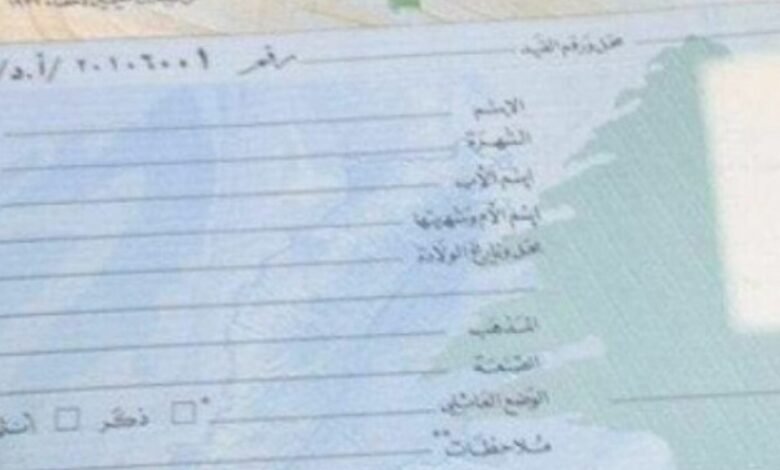 محل ورقم القيد رقم ٢٠١٠٦٠٠٩ /أ.د/
الاسم
الشهرة
اسم الأب
اسم الأم وشهرتها
محل وتاريخ الولادة
المذهب
الصنعة
الوضع العائلي * □ ذكر □
ملاحظات**